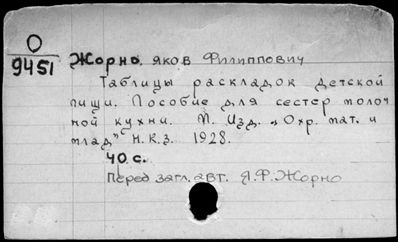 О
9451
Жорно, яков Филиппович
Таблицы раскладок детской
пищи. Пособие для сестер молоч
ной кухни. М. Изд. „Охр. мат. и
млад" Н.К.З. 1928.
40 с.
Перед загл. авт. Я.Ф. Жорно